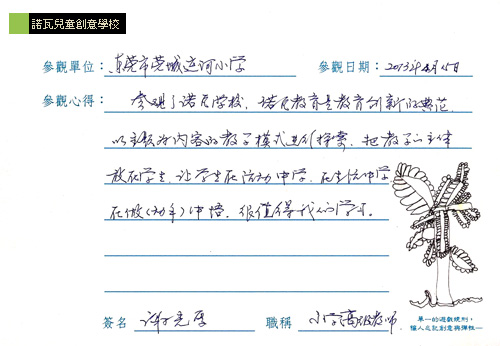 諾瓦兒童創意學校
參觀單位：东莞市莞城运河小学 參觀日期：2013年4月15日
參觀心得：参观了诺瓦学校，诺瓦教育是教育创新的典范，
以主题为内容的教学模式进行探索，把教学的主体
放在学生，让学生在活动中学，在生活中学
在做(动手)中悟，很值得我们学习。
單一的遊戲規則，
讓人忘記創意與彈性…
簽名 職稱 小学高级教师